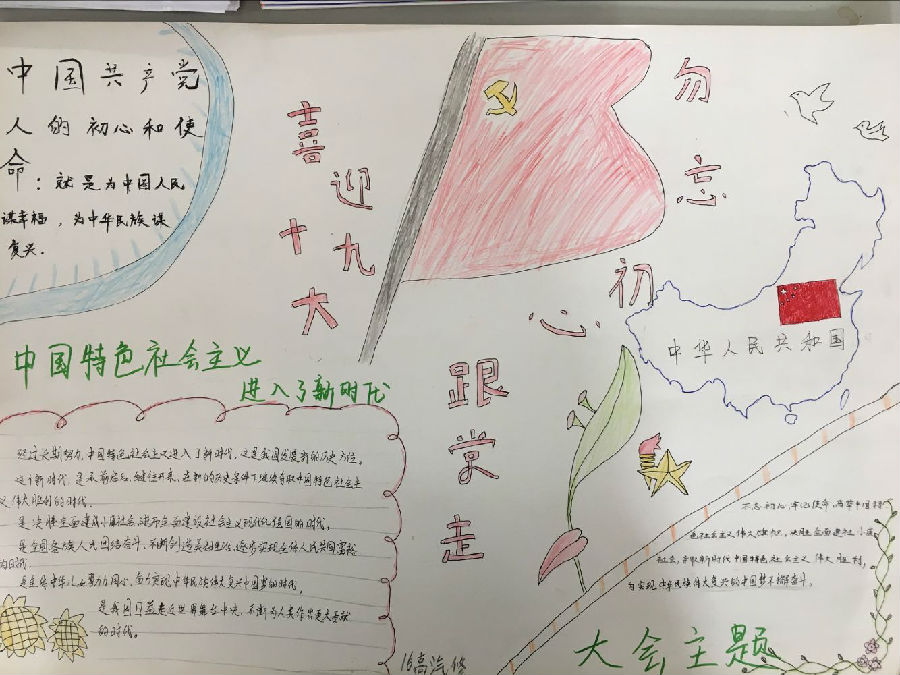 中国共产党
人的初心和使
命：就是为中国人民
谋幸福，为中华民族谋
复兴.
喜迎
十九
大
勿忘
初
心
跟党走
中华人民共和国
中国特色社会主义
进入了新时代
经过长期努力，中国特色社会主义进入了新时代，这是我国发展新的历史方位。
这个新时代，是承前启后、继往开来、在新的历史条件下继续夺取中国特色社会主
义伟大胜利的时代.
是决胜全面建成小康社会,进而全面建设社会主义现代化强国的时代。
是全国各族人民团结奋斗、不断创造美好生活、逐步实现全体人民共同富裕
的时代
是全体中华儿女勠力同心、奋力实现中华民族伟大复兴中国梦的时代，
是我国日益走近世界舞台中央、不断为人类作出更大贡献
的时代。
不忘初心，牢记使命，高举中国特
色社会主义伟大旗帜，决胜全面建成小康
社会，夺取新时代中国特色社会主义伟大胜利，
为实现中华民族伟大复兴的中国梦不懈奋斗。
大会主题
16高汽修